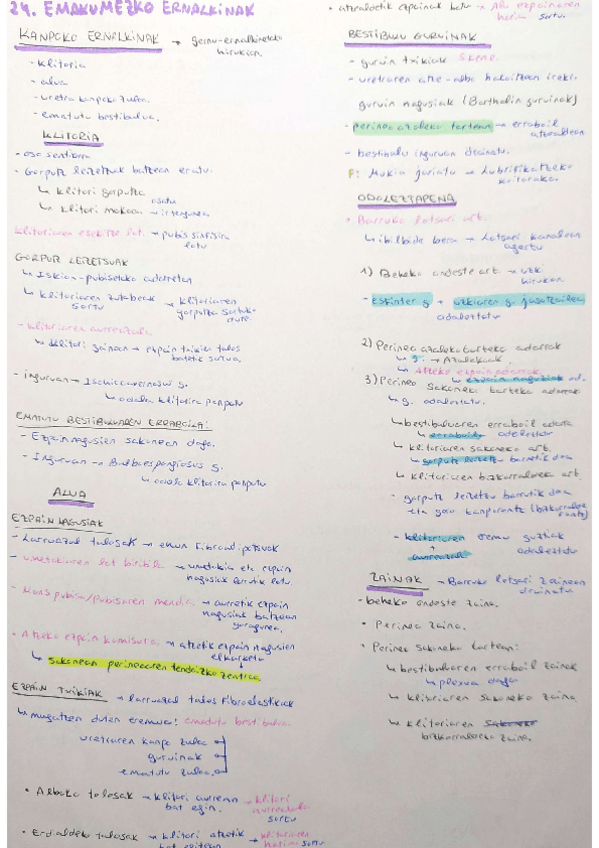 24. EMAKUMEZKO ERNALKINAK
KANPOKO ERNALKINAK → gernu-ernalkinetako
hirukian.
- klitoria
- alua
- uretra kanpoko zuloa.
- ematutu bestibulua.
KLITORIA
- oso sentikorra
- Gorputz leizetsuak batzean eratu.
↳ klitori gorputza
osatu
↳ klitori makoan → irtengunea
klitoriaren esekitze lot. → pubis sinfisira
lotu
GORPUTZ LEIZETSUAK
↳ Iskion-pubisetako adarretan
↳ klitoriaren zutabeak → klitoriaren
sortu gorputza
- klitoriaren aurrealdean
↳ klitori gainean → ezpain txikien tolos
batetik sortua.
- inguruan → Ischiocavernosus g.
↳ odola klitorira ponpatu
EMATUTU BESTIBULUAREN ERRABOILA:
- Ezpain nagusien sakonean dago.
- Inguruan → Bulboespongiosus g.
↳ odola klitorira ponpatu
ALUA
EZPAIN NAGUSIAK
- Larruazal tolosak → ehun fibroadipotsuak
- umetokiaren lot biribila → umetokia eta ezpain
nagusiak barrutik lotu.
- Mons pubisa/pubisaren mendia → aurretik ezpain
nagusiak batzean
goragunea.
- Atzeko ezpain komisura → atzetik ezpain nagusien
elkarketa
↳ sakonean perineoaren tendoizko zentroa
EZPAIN TXIKIAK → larruazal tolos fibroelastikoak
↳ mugatzen duten eremua: ematutu bestibulua.
uretraren kanpo zuloa
guruinak
ematutu zuloa
• Alboko tolosak → klitori aurrean → klitori
bat egin. aurrealdea
sortu
• Erdialdeko tolosak → klitori atzetik → klitoriaren
bat egitean sortu
• atzealdetik ezpainak batu → Alu ezpainaren
sortu
BESTIBULU GURUINAK
- guruin txikiak Skene.
- uretraren alde-albo bakoitzean ireki.
guruin nagusiak (Bartholin guruinak)
- perineo azaleko tartean → erraboil
atzealdean
- bestibulu inguruan drainatu.
F: Mukia jariatu → Lubrifikatzeko
koitoraka.
ODOLEZTAPENA
• Barruko lotsari art.
↳ ibilbide bera → Lotsari kanalean
agertu
1) Beheko ondeste art. → uzk
hirukian.
- esfinter g + uzkiaren g. jasotzailea
odoleztatu
2) Perineo azaleko tarteko adarrak
↳ g. → Azalekoak
↳ Atzeko ezpain adarrak
3) Perineo sakoneko tarteko adarrak
↳ g. odoleztatu.
↳ bestibuluaren erraboil adarra
↳ erraboila odoleztatu
↳ klitoriaren sakoneko art.
↳ gorputz leizetsu barrutik doa
↳ klitoriaren bizkarraldeko art.
- gorputz leizetsu barrutik doa
eta gero kanporantz (bizkarralde
rantz)
- klitoriaren eremu guztiak
+ aurreazal odoleztatu
ZAINAK → Barruko lotsari zainean
drainatu
• beheko ondeste zaina.
• Perineo zaina.
• Perineo sakoneko tartean:
↳ bestibuluaren erraboil zainak
↳ plexua dago
↳ klitoriaren sakoneko zaina
↳ klitoriaren sakoneko
bizkarraldeko zaina.